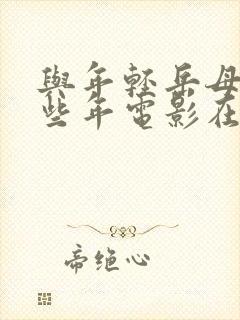 與年輕岳母
些年電影在
帝绝心